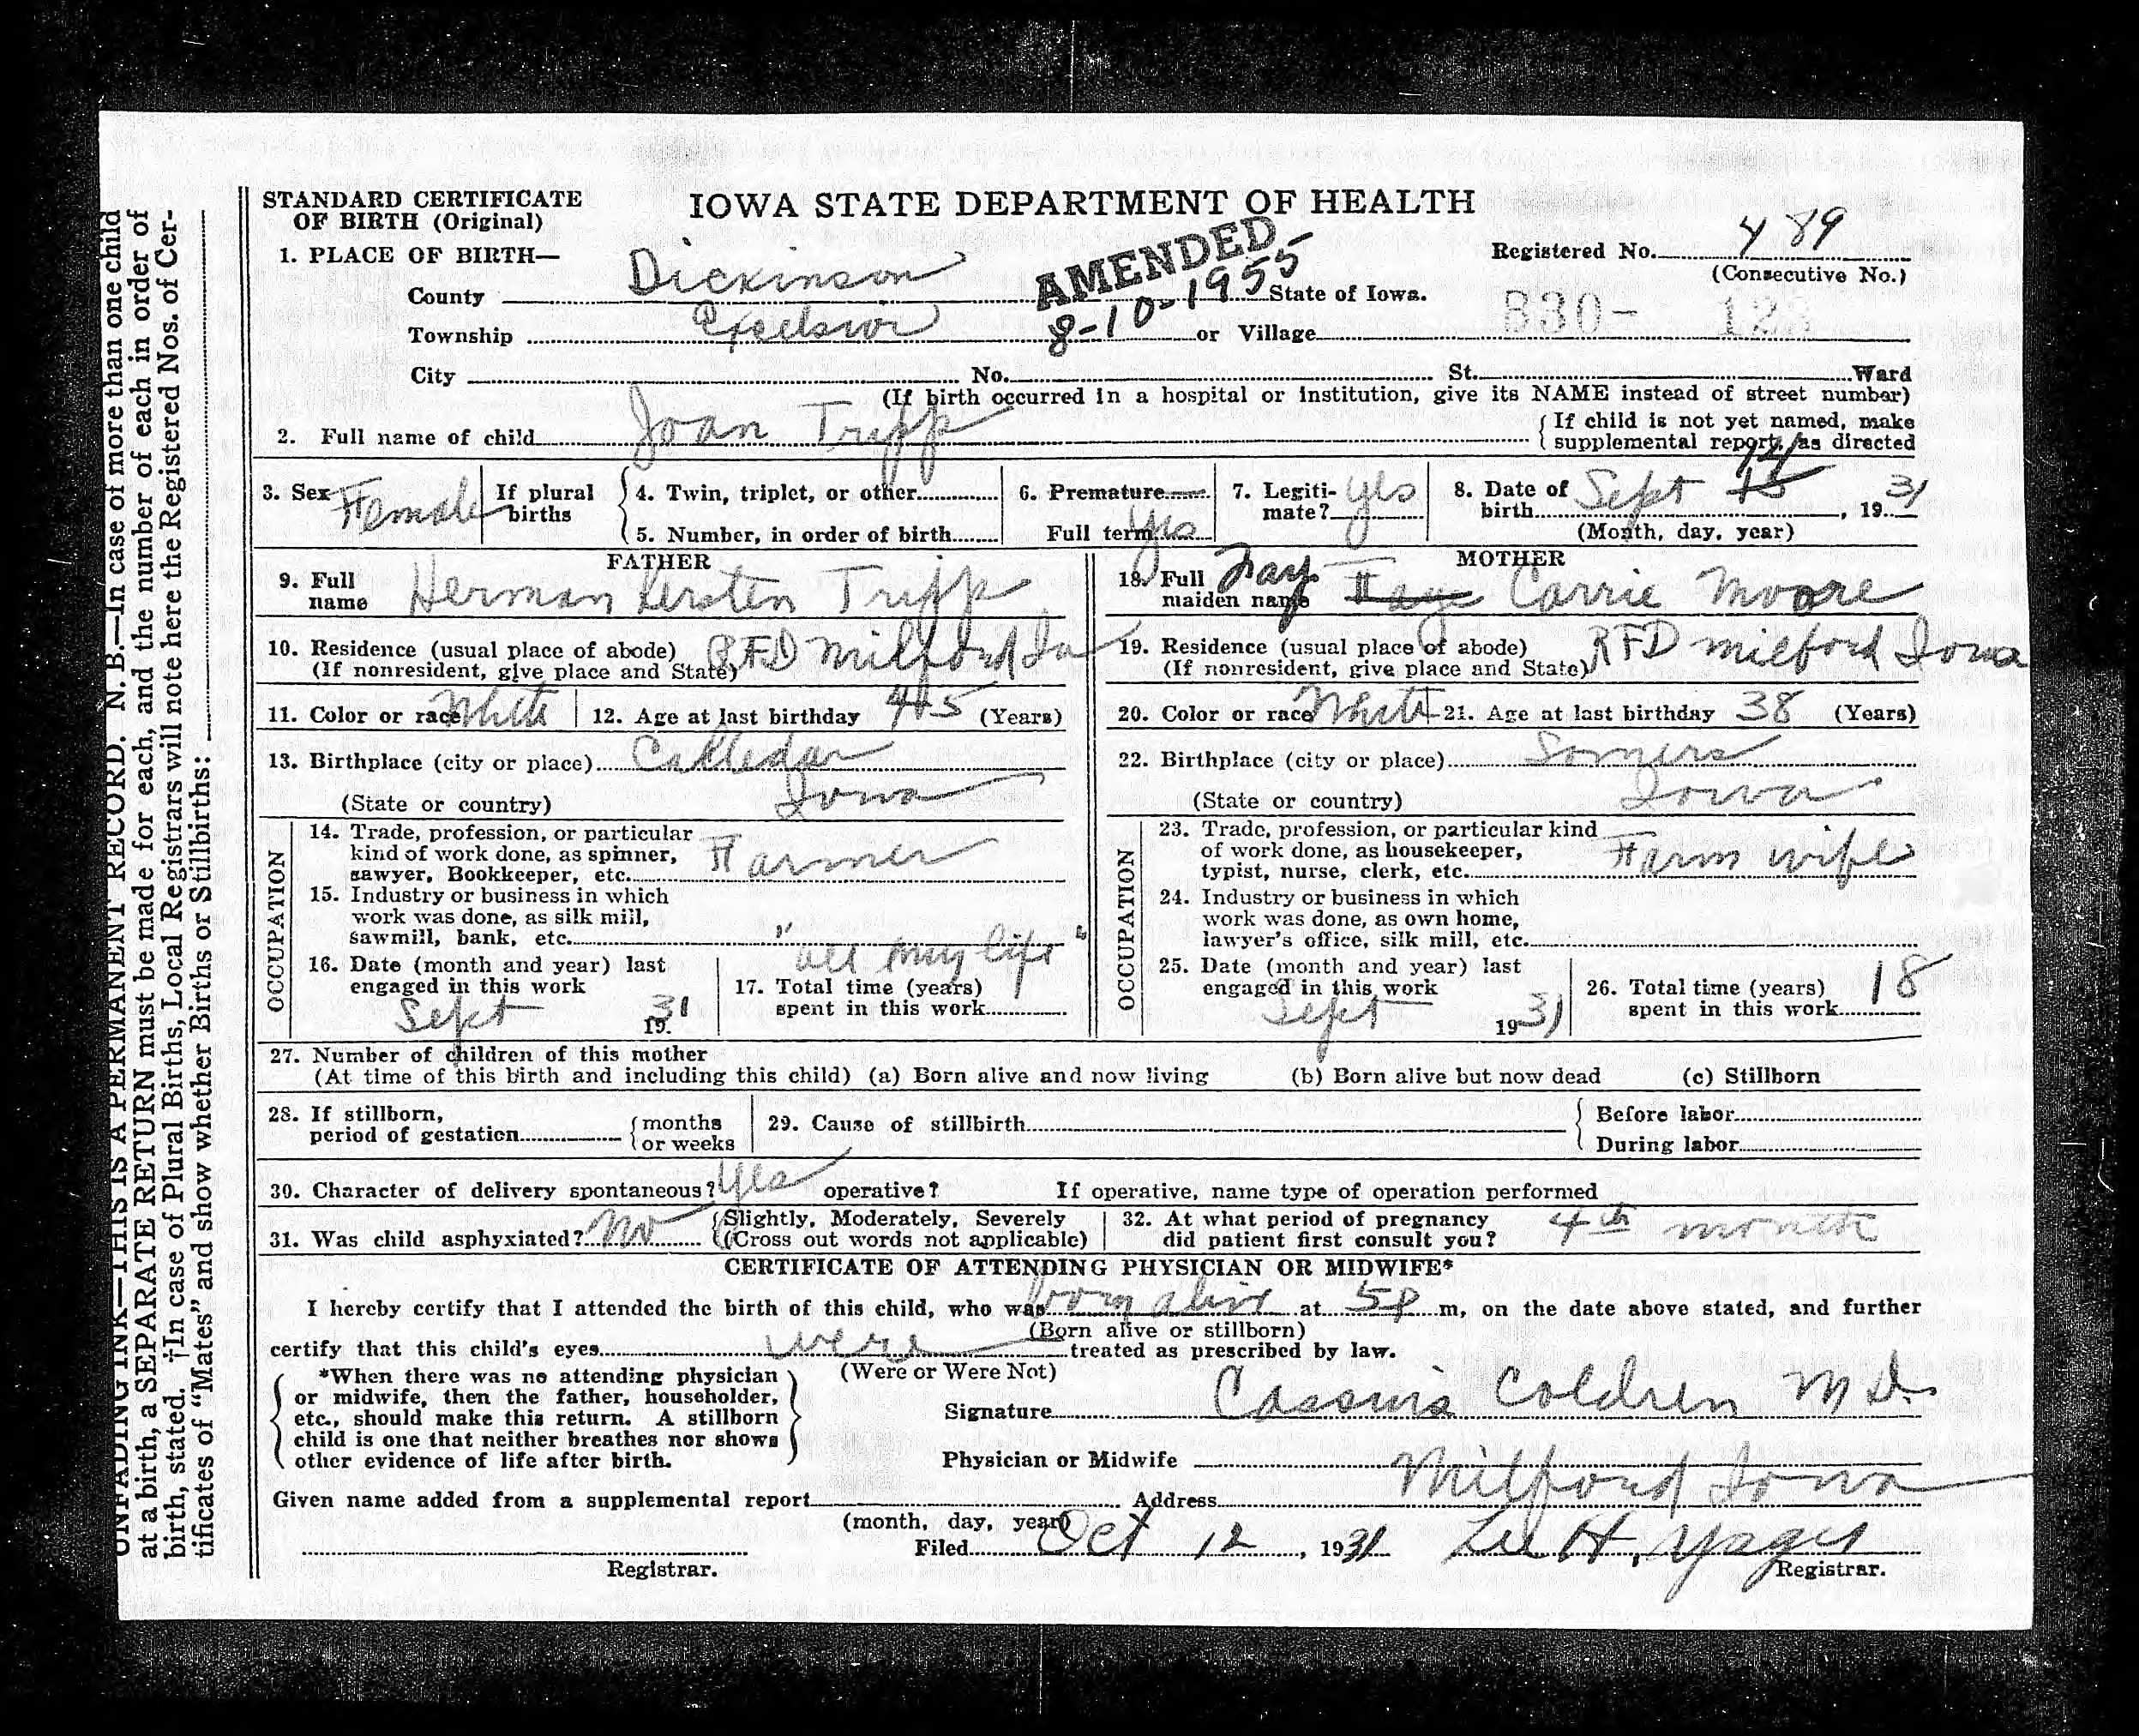 STANDARD CERTIFICATE
OF BIRTH (Original)
IOWA STATE DEPARTMENT OF HEALTH
AMENDED
8-10-1955
Registered No. 489
(Consecutive No.)
1. PLACE OF BIRTH—
County Dickinson State of Iowa.
B30- 12
Township Excelsior or Village
City No. St. Ward
(If birth occurred in a hospital or institution, give its NAME instead of street number)
2. Full name of child Joan Tripp
(If child is not yet named, make
supplemental report, as directed
3. Sex Female
If plural births
4. Twin, triplet, or other
5. Number, in order of birth
6. Premature
Full term Yes
7. Legiti-
mate? yes
8. Date of
birth Sept 15 14, 1931
(Month, day, year)
FATHER
9. Full
name Herman Kersten Tripp
10. Residence (usual place of abode) RFD Milford Ia
(If nonresident, give place and State)
11. Color or race White
12. Age at last birthday 45 (Years)
13. Birthplace (city or place)
(State or country) Iowa
OCCUPATION
14. Trade, profession, or particular
kind of work done, as spinner,
sawyer, Bookkeeper, etc. Farmer
15. Industry or business in which
work was done, as silk mill,
sawmill, bank, etc.
16. Date (month and year) last
engaged in this work
Sept 1931
"all my life"
17. Total time (years)
spent in this work
MOTHER
18. Full
maiden name Fay Faye Carrie Moore
19. Residence (usual place of abode) RFD Milford Iowa
(If nonresident, give place and State)
20. Color or race White
21. Age at last birthday 38 (Years)
22. Birthplace (city or place) Somers
(State or country) Iowa
OCCUPATION
23. Trade, profession, or particular kind
of work done, as housekeeper,
typist, nurse, clerk, etc. Farm wife
24. Industry or business in which
work was done, as own home,
lawyer's office, silk mill, etc.
25. Date (month and year) last
engaged in this work
Sept 1931
26. Total time (years)
spent in this work 18
27. Number of children of this mother
(At time of this birth and including this child) (a) Born alive and now living (b) Born alive but now dead (c) Stillborn
28. If stillborn,
period of gestation months
or weeks
29. Cause of stillbirth
Before labor
During labor
30. Character of delivery spontaneous? Yes operative? If operative, name type of operation performed
31. Was child asphyxiated? No (Slightly, Moderately, Severely
(Cross out words not applicable)
32. At what period of pregnancy
did patient first consult you? 4th month
CERTIFICATE OF ATTENDING PHYSICIAN OR MIDWIFE*
I hereby certify that I attended the birth of this child, who was born alive at 5p m, on the date above stated, and further
(Born alive or stillborn)
certify that this child's eyes were treated as prescribed by law.
(Were or Were Not)
*When there was no attending physician
or midwife, then the father, householder,
etc., should make this return. A stillborn
child is one that neither breathes nor shows
other evidence of life after birth.
Signature Cassius Coldren M D.
Physician or Midwife
Given name added from a supplemental report
(month, day, year)
Address Milford Iowa
Filed Oct 12, 1931 Lee H. Yager
Registrar.
Registrar.
UNFADING INK—THIS IS A PERMANENT RECORD. N.B.—In case of more than one child
at a birth, a SEPARATE RETURN must be made for each, and the number of each in order of
birth, stated. †In case of Plural Births, Local Registrars will note here the Registered Nos. of Cer-
tificates of "Mates" and show whether Births or Stillbirths: